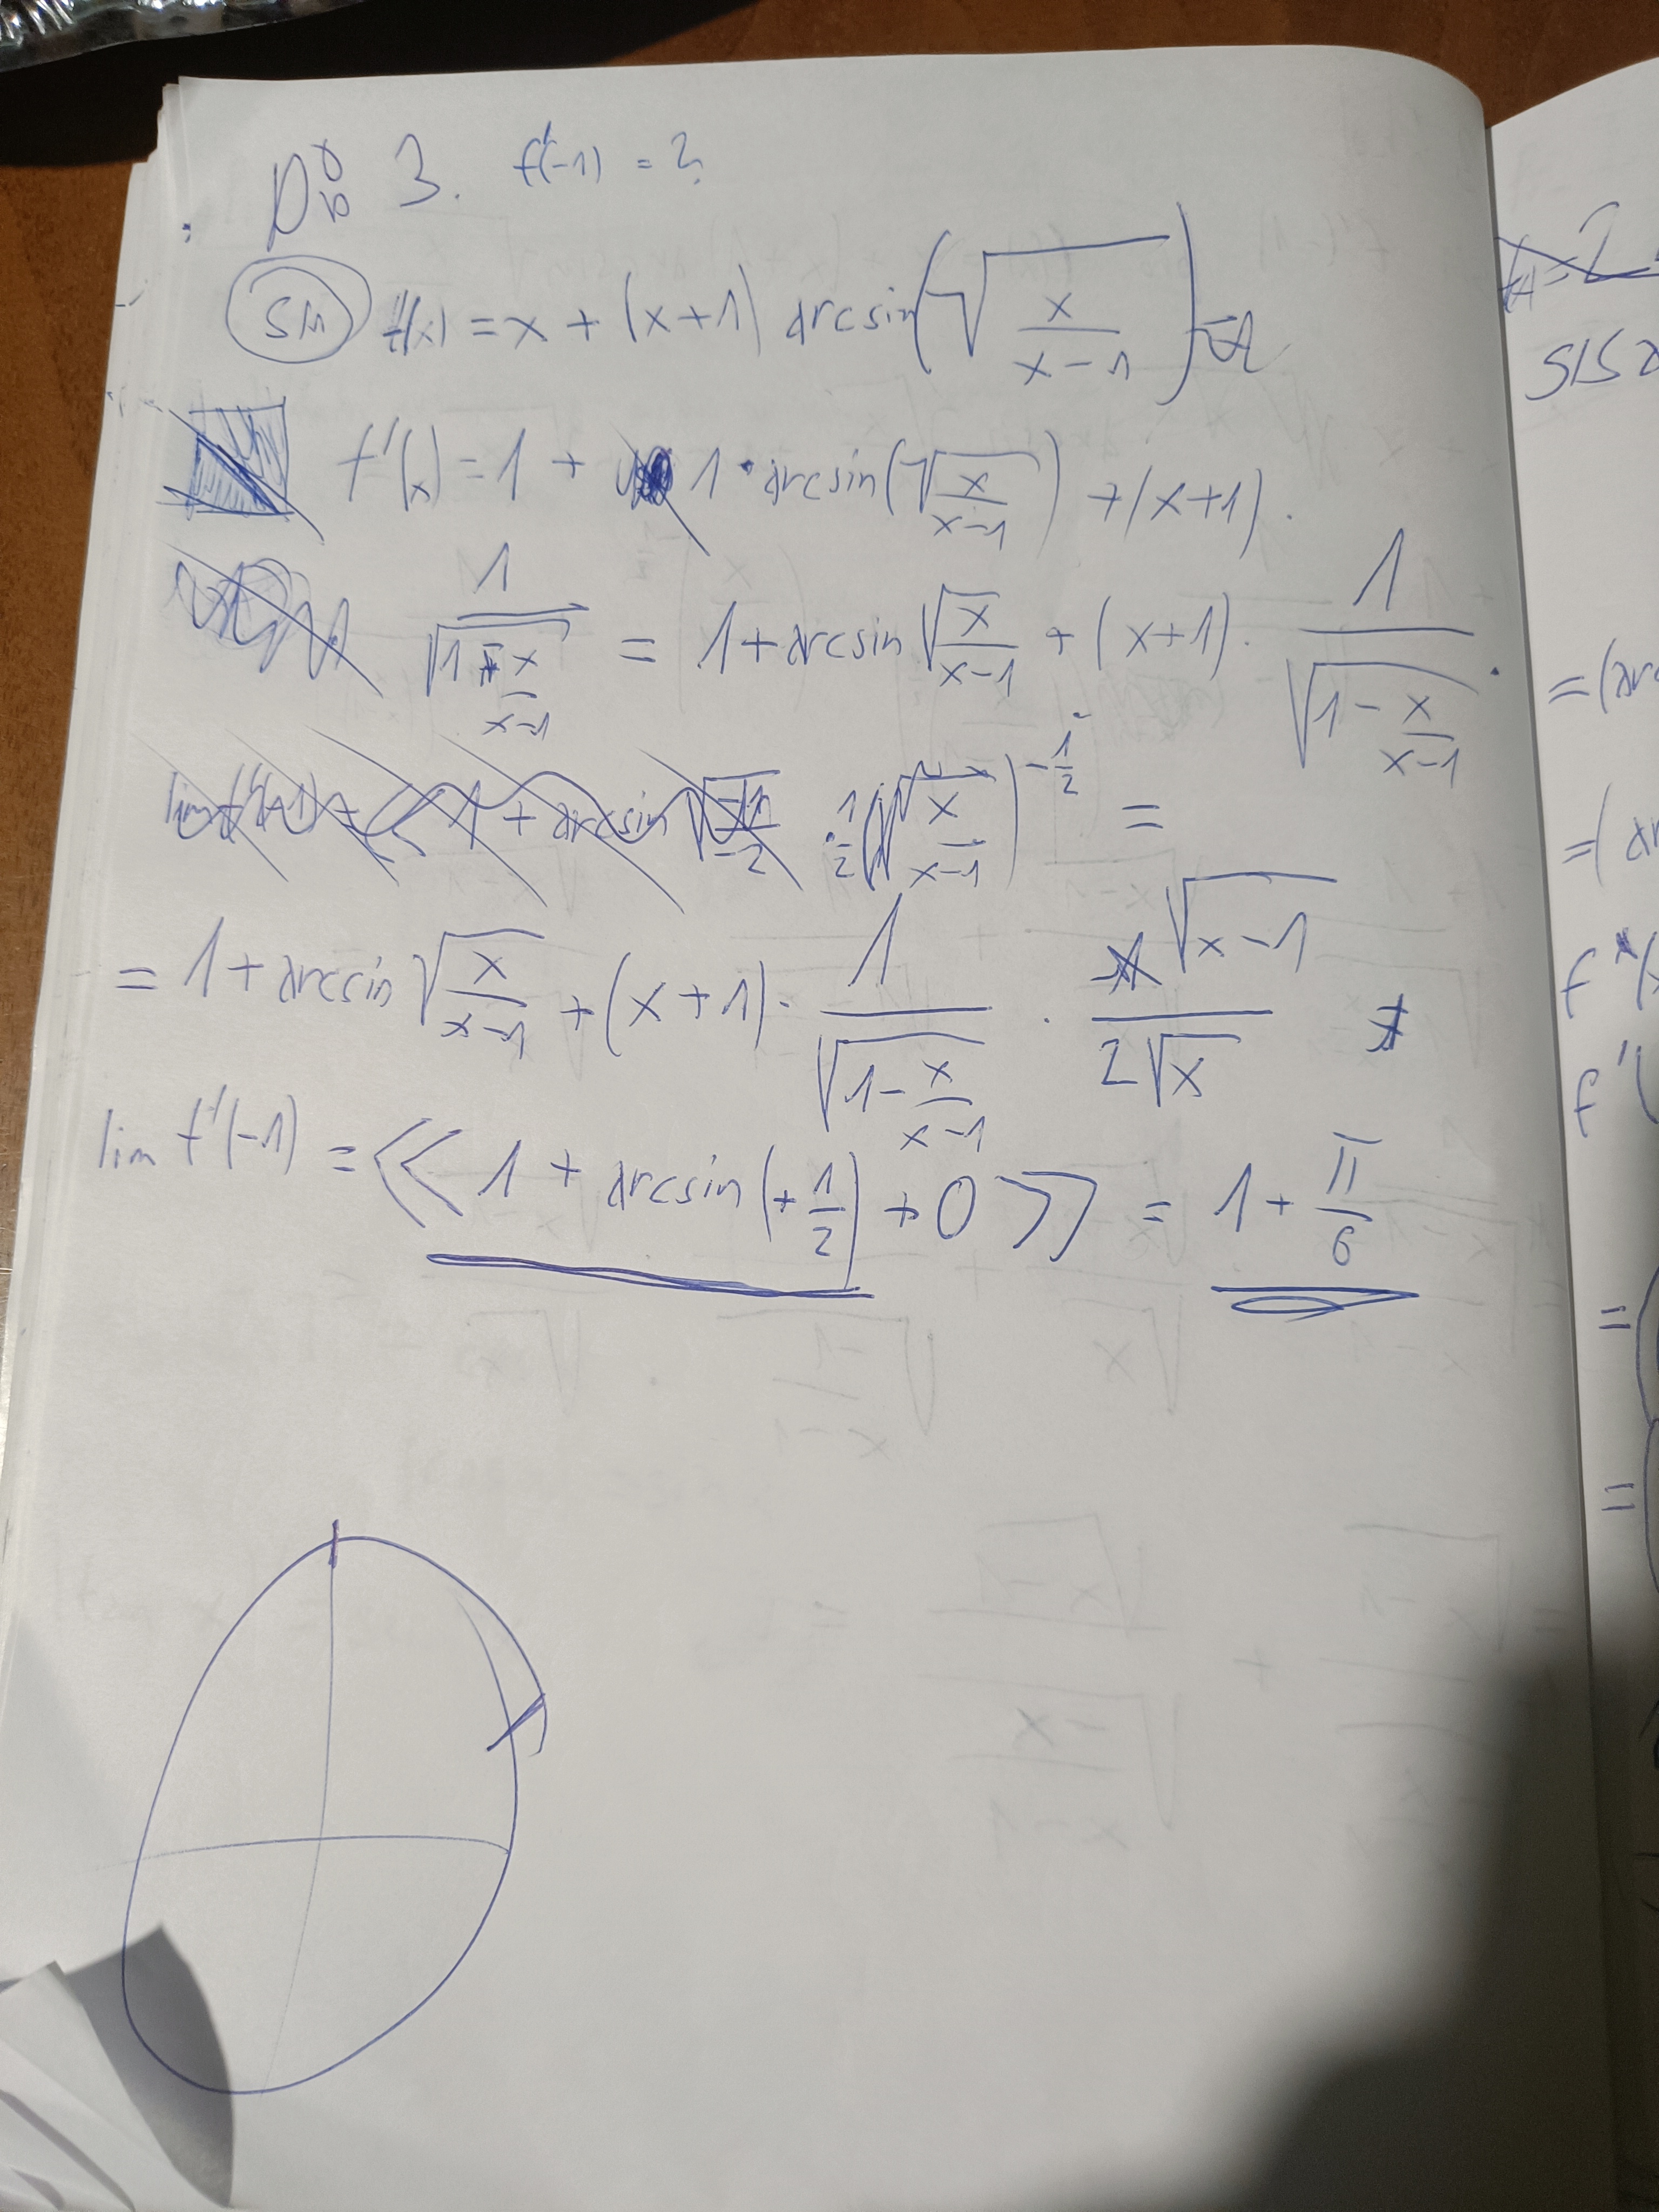 3. f'(-1) = ?
f(x) = x + (x+1) arcsin(√(x/(x-1)))
f'(x) = 1 + 1 · arcsin(√(x/(x-1))) + (x+1) ·
1/√(1 - x/(x-1)) = 1 + arcsin √(x/(x-1)) + (x+1) · 1/√(1 - x/(x-1)) ·
· 1/2 (x/(x-1))^(-1/2) =
= 1 + arcsin √(x/(x-1)) + (x+1) · 1/√(1 - x/(x-1)) · √(x-1)/(2√x)
lim f'(-1) = << 1 + arcsin(+ 1/2) + 0 >> = 1 + π/6